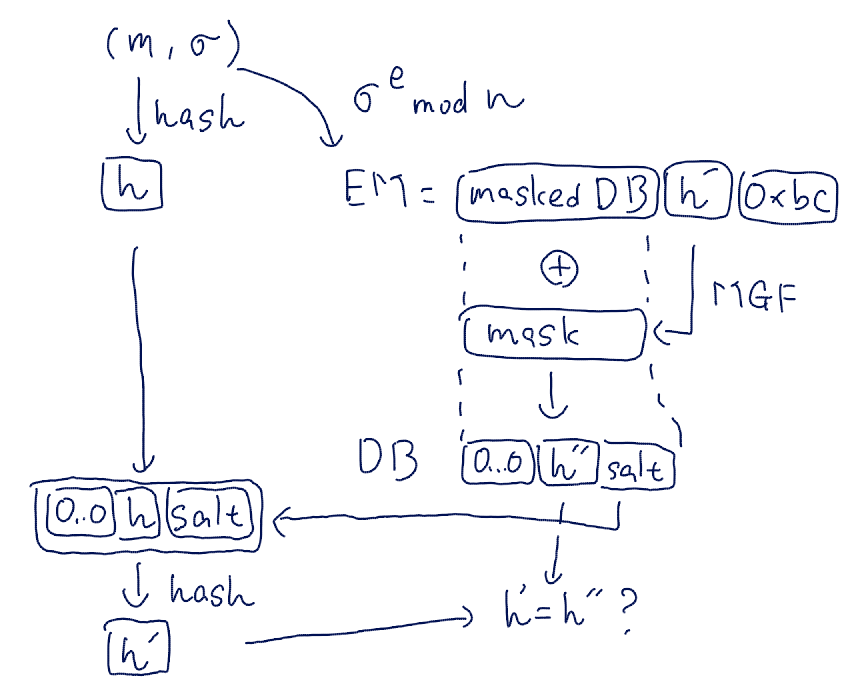 (m, σ)
hash
σ^e mod n
h
EM = masked DB h′ 0xbc
⊕
MGF
mask
DB 0..0 h″ salt
0..0 h salt
hash
h′ = h″ ?
h′